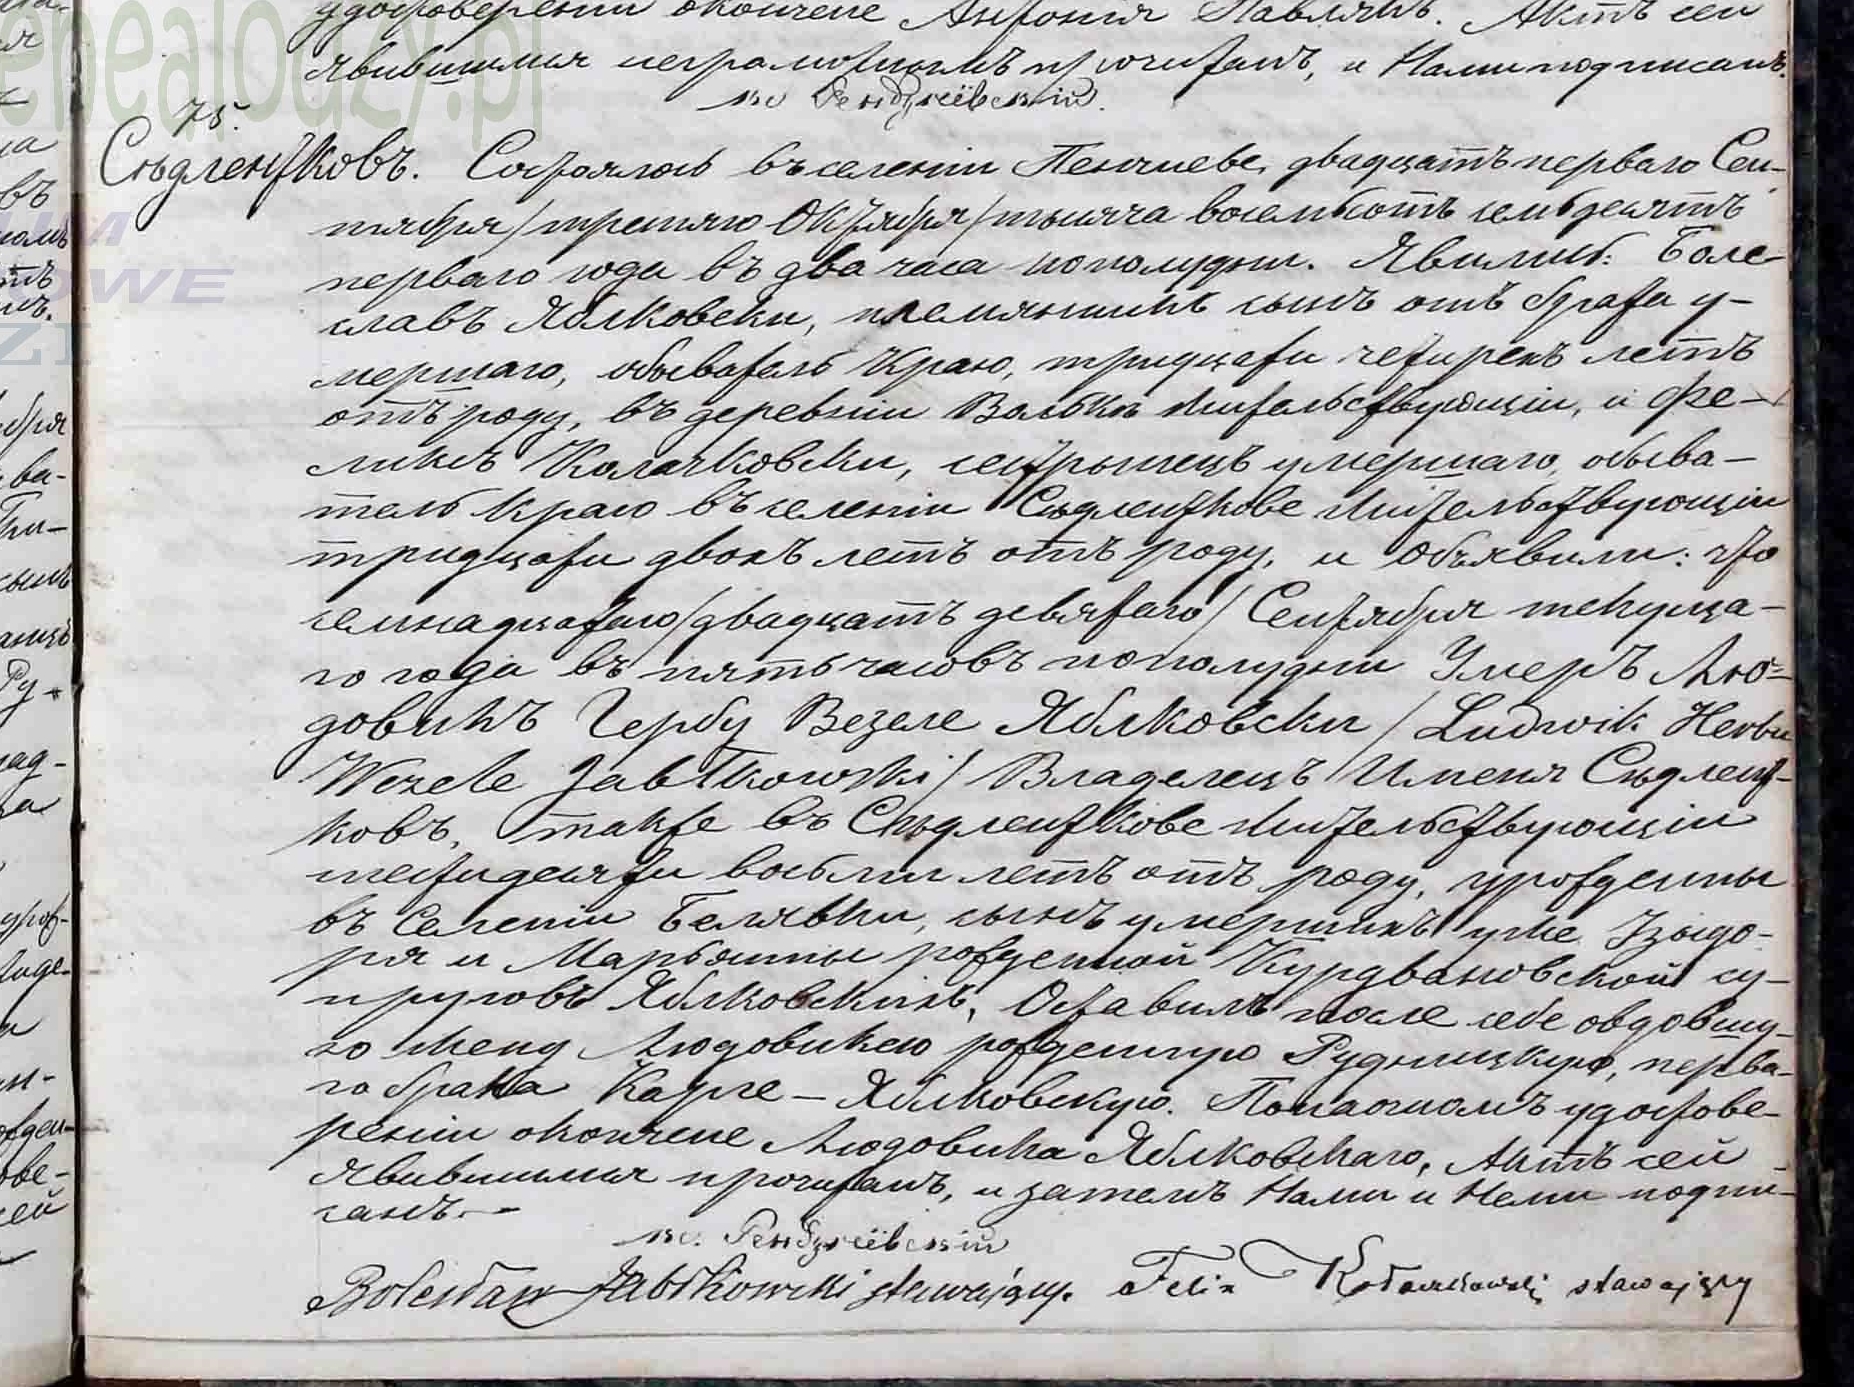 удостоверении окончене Антонія Павлякъ. Актъ сеи
явившимся неграмотнымъ прочитанъ, и Нами подписанъ.
кс Рендзіевскій.
75.
Сѣдлентковъ. Состоялось въ селеніи Пенчневе, двадцать перваго Сен-
тября /третяго Октября/ тысяча восемьсотъ семьдесятъ
перваго года въ два часа пополудни. Явились: Боле-
славъ Яблковски, племянникъ сынъ отъ брата у-
мершаго, обыватель Краю, тридцати четирехъ летъ
отъ роду, въ деревнии Волька жительствующіи, и Фе-
ликсъ Колачковски, сестрынецъ умершаго, обыва-
тель краю въ селеніи Сѣдленткове жительствующіи
тридцати двохъ летъ отъ роду, и объявили: что
семнадцатаго /двадцать девятаго/ Сентября текуща-
го года въ пять часовъ пополудни Умеръ Лю-
довикъ Гербу Везеле Яблковски / Ludwik Herbu
Wezele Jabłkowski / Владелецъ Именя Сѣдлент-
ковъ, также въ Сѣдленткове жительствующіи
шестидесяти восьми летъ отъ роду, урожденны
въ Селеніи Белявки, сынъ умершихъ уже Изыдо-
ря и Марьянны рожденной Курдвановской су-
пруговъ Яблковскихъ, Оставилъ после себе овдовшу-
ю жену Людовикею рожденную Рудницкую, перва-
го брака Карге - Яблковскую. По наочномъ удостове-
рении окончене Людовика Яблковскаго, Актъ сей
явившимся прочитанъ, и затемъ Нами и Неми подпи-
санъ.-
кс. Рендзіевскій
Bolesław Jabłkowski stawający. Felix Kołaczkowski stawający